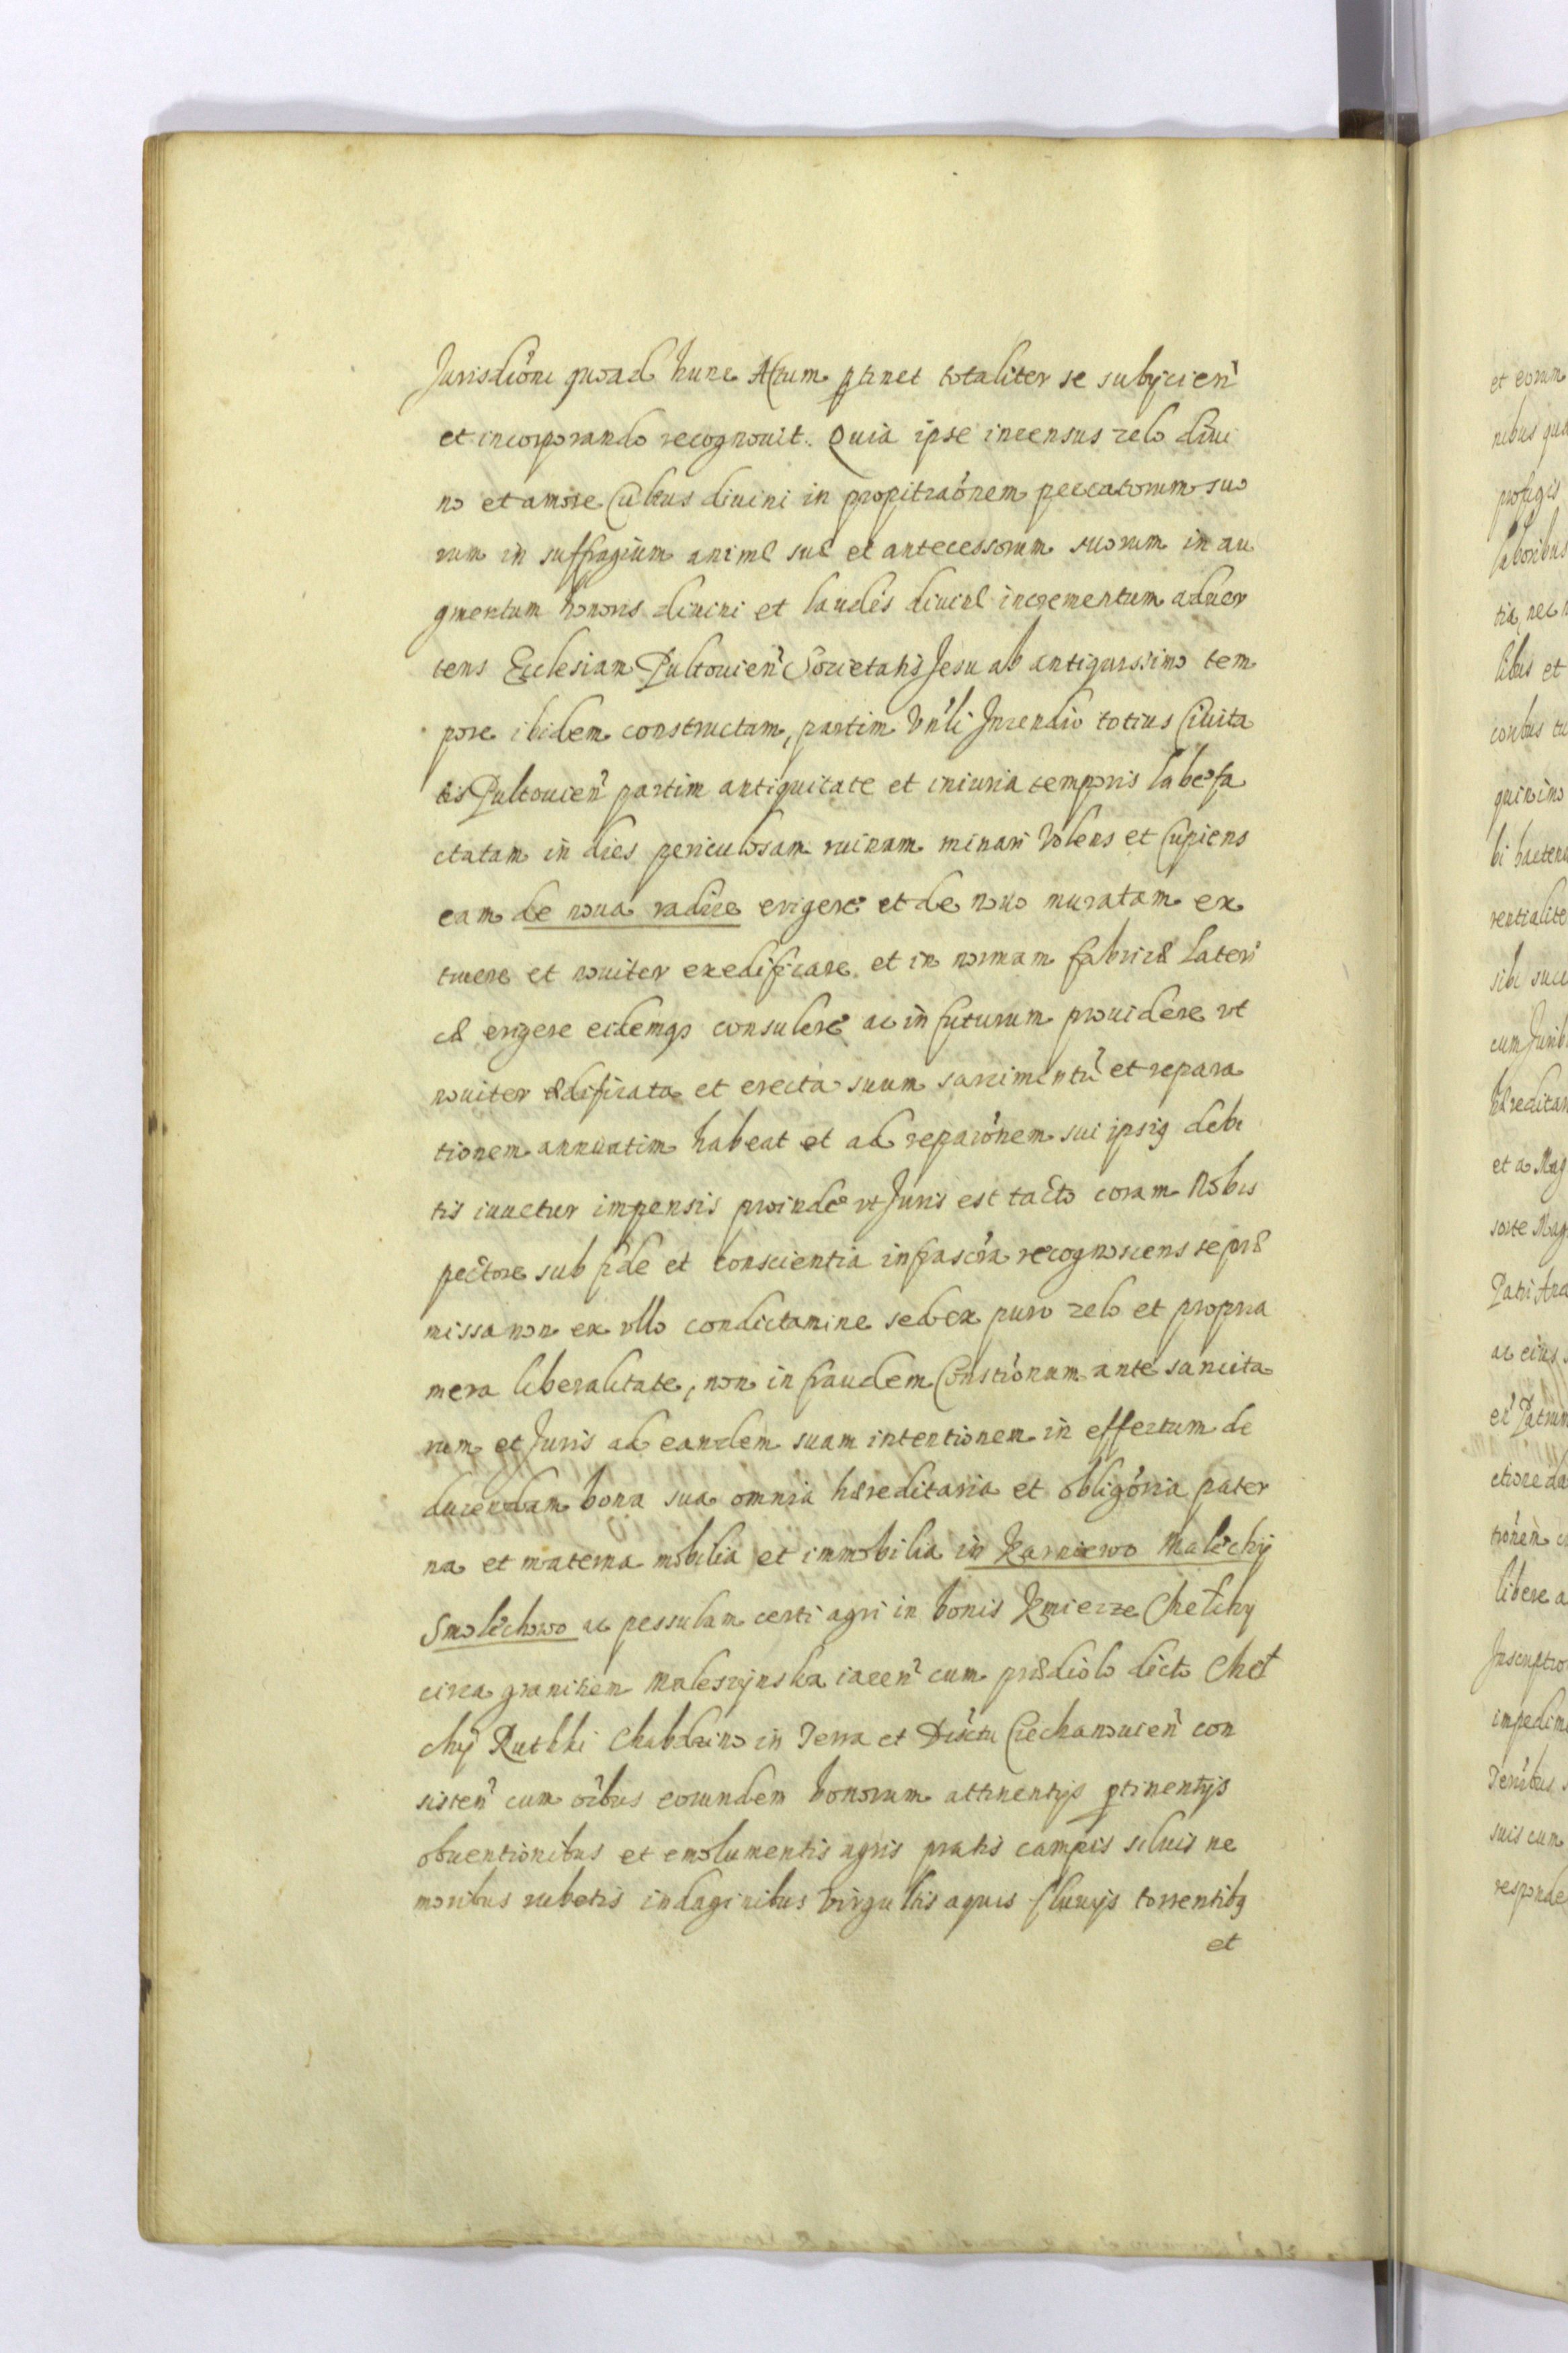 Jurisdi͠oni quoad hunc Actum ꝑtinet totaliter se subijcien͠
et incorporando recognouit. Quia ipse incensus zelo diui
no et amore Cultus diuini in propitia͠onem peccatorum suo
rum in suffragium animę suę et antecessorum suorum in au
gmentum honoris diuini et laudis diuinę incrementum aduer
tens Ecclesiam Pultouien͠ Societatis Jesu ab antiquissimo tem
pore ibidem constructam, partim Vn͠li Incendio totius Ciuita
tis Pultouien͠ partim antiquitate et iniuria temporis labefa
ctatam in dies periculosam ruinam minari Volens et Cupiens
eam de noua radice erigere et de nouo muratam ex
truere et nouiter exedificare et in normam fabricæ Lateri
cæ erigere eidemqꝫ consulere ac in futurum prouidere vt
nouiter ædificata et erecta suum sarcimentu͠ et repara
tionem annuatim habeat et ad repara͠onem sui ipsiꝯ debi
tis iuuetur impensis proinde vt Juris est tacto coram Nobis
pectore sub fide et conscientia infrasc͠ra recognoscens se præ
missa non ex vllo condictamine sed ex puro zelo et propria
mera liberalitate, non in fraudem Consti͠onum ante sancita
rum et Juris ad eandem suam intentionem in effectum de
ducendam bona sua omnia hæreditaria et oblig͠oria pater
na et materna mobilia et immobilia in Karniewo Malechij
Smolechowo ac pessulam certi agri in bonis Kmiecze Chełchy
circa granitiem Malescynska iacen͠ cum prædiolo dicto Cheł
chy Rutkki Chabdzino in Terra et Dis͠ctu Ciechanouien͠ con
sisten͠ cum o͠ibus eorundem bonorum attinentijs ꝑtinentijs
obuentionibus et emolumentis agris pratis campis siluis ne
moribus rubetis indaginibus Virgultis aquis fluuijs torrentibꝯ
et